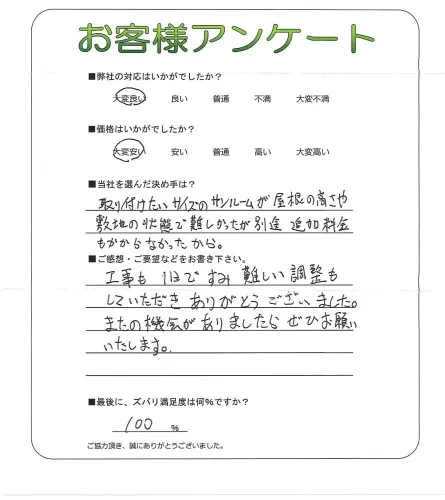 お客様アンケート
■弊社の対応はいかがでしたか？
大変良い 良い 普通 不満 大変不満
■価格はいかがでしたか？
大変安い 安い 普通 高い 大変高い
■当社を選んだ決め手は？
取り付けたいサイズのサンルームが屋根の高さや
敷地の状態で難しかったが別途追加料金
もかからなかったから。
■ご感想・ご要望などをお書き下さい。
工事も1日ですみ難しい調整も
していただきありがとうございました。
またの機会がありましたらぜひお願い
いたします。
■最後に、ズバリ満足度は何%ですか？
100 %
ご協力頂き、誠にありがとうございました。